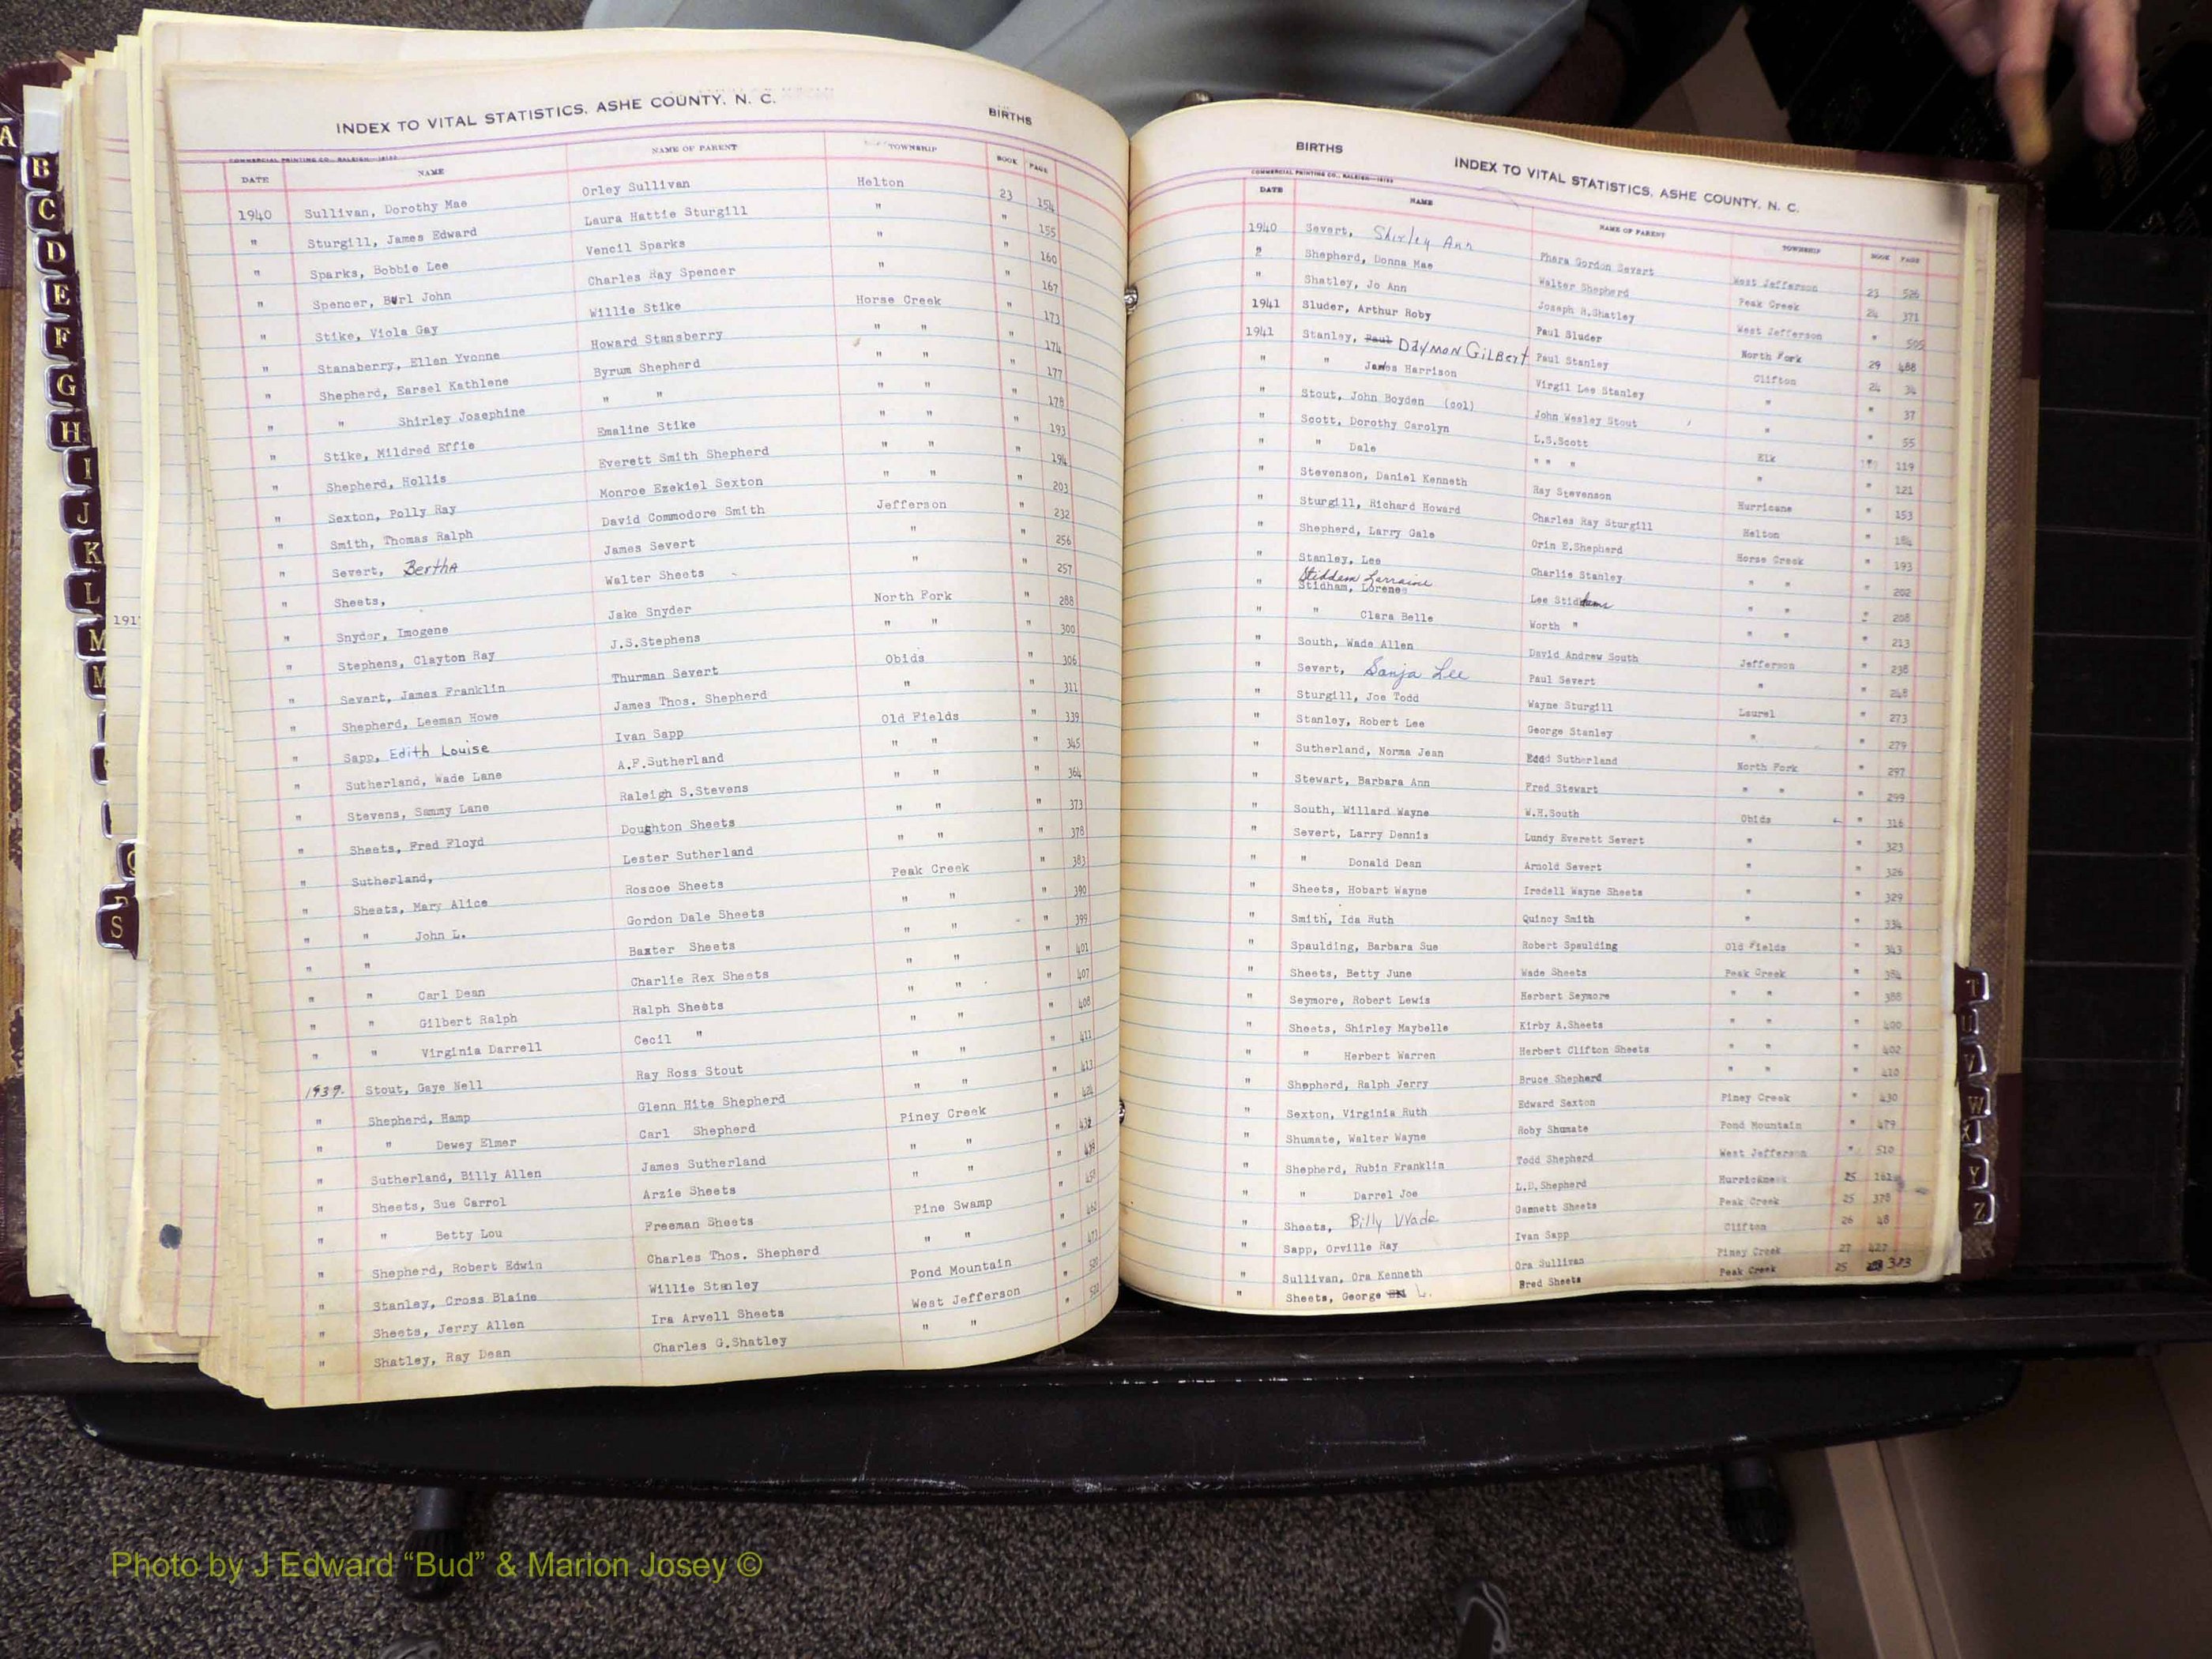 A
B
C
D
E
F
G
H
I
J
K
L
M
S
191
INDEX TO VITAL STATISTICS, ASHE COUNTY, N. C. BIRTHS
COMMERCIAL PRINTING CO., RALEIGH
DATE NAME NAME OF PARENT TOWNSHIP BOOK PAGE
1940 Sullivan, Dorothy Mae Orley Sullivan Helton 23 154
" Sturgill, James Edward Laura Hattie Sturgill " " 155
" Sparks, Bobbie Lee Vencil Sparks " " 160
" Spencer, Burl John Charles Ray Spencer " " 167
" Stike, Viola Gay Willie Stike Horse Creek " 173
" Stansberry, Ellen Yvonne Howard Stansberry " " " 174
" Shepherd, Earsel Kathlene Byrum Shepherd " " " 177
" " Shirley Josephine " " " " " 178
" Stike, Mildred Effie Emaline Stike " " " 193
" Shepherd, Hollis Everett Smith Shepherd " " " 194
" Sexton, Polly Ray Monroe Ezekiel Sexton " " " 203
" Smith, Thomas Ralph David Commodore Smith Jefferson " 232
" Severt, Bertha James Severt " " 256
" Sheets, Walter Sheets " " 257
" Snyder, Imogene Jake Snyder North Fork " 288
" Stephens, Clayton Ray J.S.Stephens " " " 300
" Severt, James Franklin Thurman Severt Obids " 306
" Shepherd, Leeman Howe James Thos. Shepherd " " 311
" Sapp, Edith Louise Ivan Sapp Old Fields " 339
" Sutherland, Wade Lane A.F.Sutherland " " " 345
" Stevens, Sammy Lane Raleigh S.Stevens " " " 364
" Sheets, Fred Floyd Doughton Sheets " " " 373
" Sutherland, Lester Sutherland " " " 378
" Sheets, Mary Alice Roscoe Sheets Peak Creek " 383
" " John L. Gordon Dale Sheets " " " 390
" " Baxter Sheets " " " 399
" " Carl Dean Charlie Rex Sheets " " " 401
" " Gilbert Ralph Ralph Sheets " " " 407
" " Virginia Darrell Cecil " " " " 408
1939. Stout, Gaye Nell Ray Ross Stout " " " 411
" Shepherd, Hamp Glenn Hite Shepherd " " " 413
" " Dewey Elmer Carl Shepherd Piney Creek "
" Sutherland, Billy Allen James Sutherland " " "
" Sheets, Sue Carrol Arzie Sheets " " "
" " Betty Lou Freeman Sheets Pine Swamp "
" Shepherd, Robert Edwin Charles Thos. Shepherd " " "
" Stanley, Cross Blaine Willie Stanley Pond Mountain "
" Sheets, Jerry Allen Ira Arvell Sheets West Jefferson "
" Shatley, Ray Dean Charles G.Shatley " " "
BIRTHS INDEX TO VITAL STATISTICS, ASHE COUNTY, N. C.
COMMERCIAL PRINTING CO., RALEIGH
DATE NAME NAME OF PARENT TOWNSHIP BOOK PAGE
1940 Severt, Shirley Ann Phara Gordon Severt West Jefferson 23 526
" Shepherd, Donna Mae Walter Shepherd Peak Creek 24 371
" Shatley, Jo Ann Joseph R.Shatley West Jefferson "
1941 Sluder, Arthur Roby Paul Sluder North Fork 29 488
1941 Stanley, Paul Daymon Gilbert Paul Stanley Clifton 24 34
" " James Harrison Virgil Lee Stanley " " 37
" Stout, John Boyden (col) John Wesley Stout " " 55
" Scott, Dorothy Carolyn L.S.Scott Elk 119
" " Dale " " " " " 121
" Stevenson, Daniel Kenneth Ray Stevenson Hurricane " 153
" Sturgill, Richard Howard Charles Ray Sturgill Helton " 184
" Shepherd, Larry Gale Orin E.Shepherd Horse Creek " 193
" Stanley, Lee Charlie Stanley " " " 202
Stiddem Lorraine
" Stidham, Lorene Lee Stiddems " " " 208
" " Clara Belle Worth " " " " 213
" South, Wade Allen David Andrew South Jefferson " 238
" Severt, Sanja Lee Paul Severt " " 248
" Sturgill, Joe Todd Wayne Sturgill Laurel " 273
" Stanley, Robert Lee George Stanley " " 279
" Sutherland, Norma Jean Edd Sutherland North Fork " 297
" Stewart, Barbara Ann Fred Stewart " " " 299
" South, Willard Wayne W.H.South Obids " 316
" Severt, Larry Dennis Lundy Everett Severt " " 323
" " Donald Dean Arnold Severt " " 326
" Sheets, Hobart Wayne Iredell Wayne Sheets " " 329
" Smith, Ida Ruth Quincy Smith " " 334
" Spaulding, Barbara Sue Robert Spaulding Old Fields " 343
" Sheets, Betty June Wade Sheets Peak Creek " 384
" Seymore, Robert Lewis Herbert Seymore " " " 388
" Sheets, Shirley Maybelle Kirby A.Sheets " " " 400
" " Herbert Warren Herbert Clifton Sheets " " " 402
" Shepherd, Ralph Jerry Bruce Shepherd " " " 410
" Sexton, Virginia Ruth Edward Sexton Piney Creek " 430
" Shumate, Walter Wayne Roby Shumate Pond Mountain " 479
" Shepherd, Rubin Franklin Todd Shepherd West Jefferson " 510
" " Darrel Joe L.D.Shepherd Hurricane 25 161
" Sheets, Billy Wade Gannett Sheets Peak Creek 25 378
" Sapp, Orville Ray Ivan Sapp Clifton 26 48
" Sullivan, Ora Kenneth Ora Sullivan Piney Creek 27 427
" Sheets, George L. Fred Sheets Peak Creek 25 373
T
U
V
W
X
Y
Z
Photo by J Edward “Bud” & Marion Josey ©